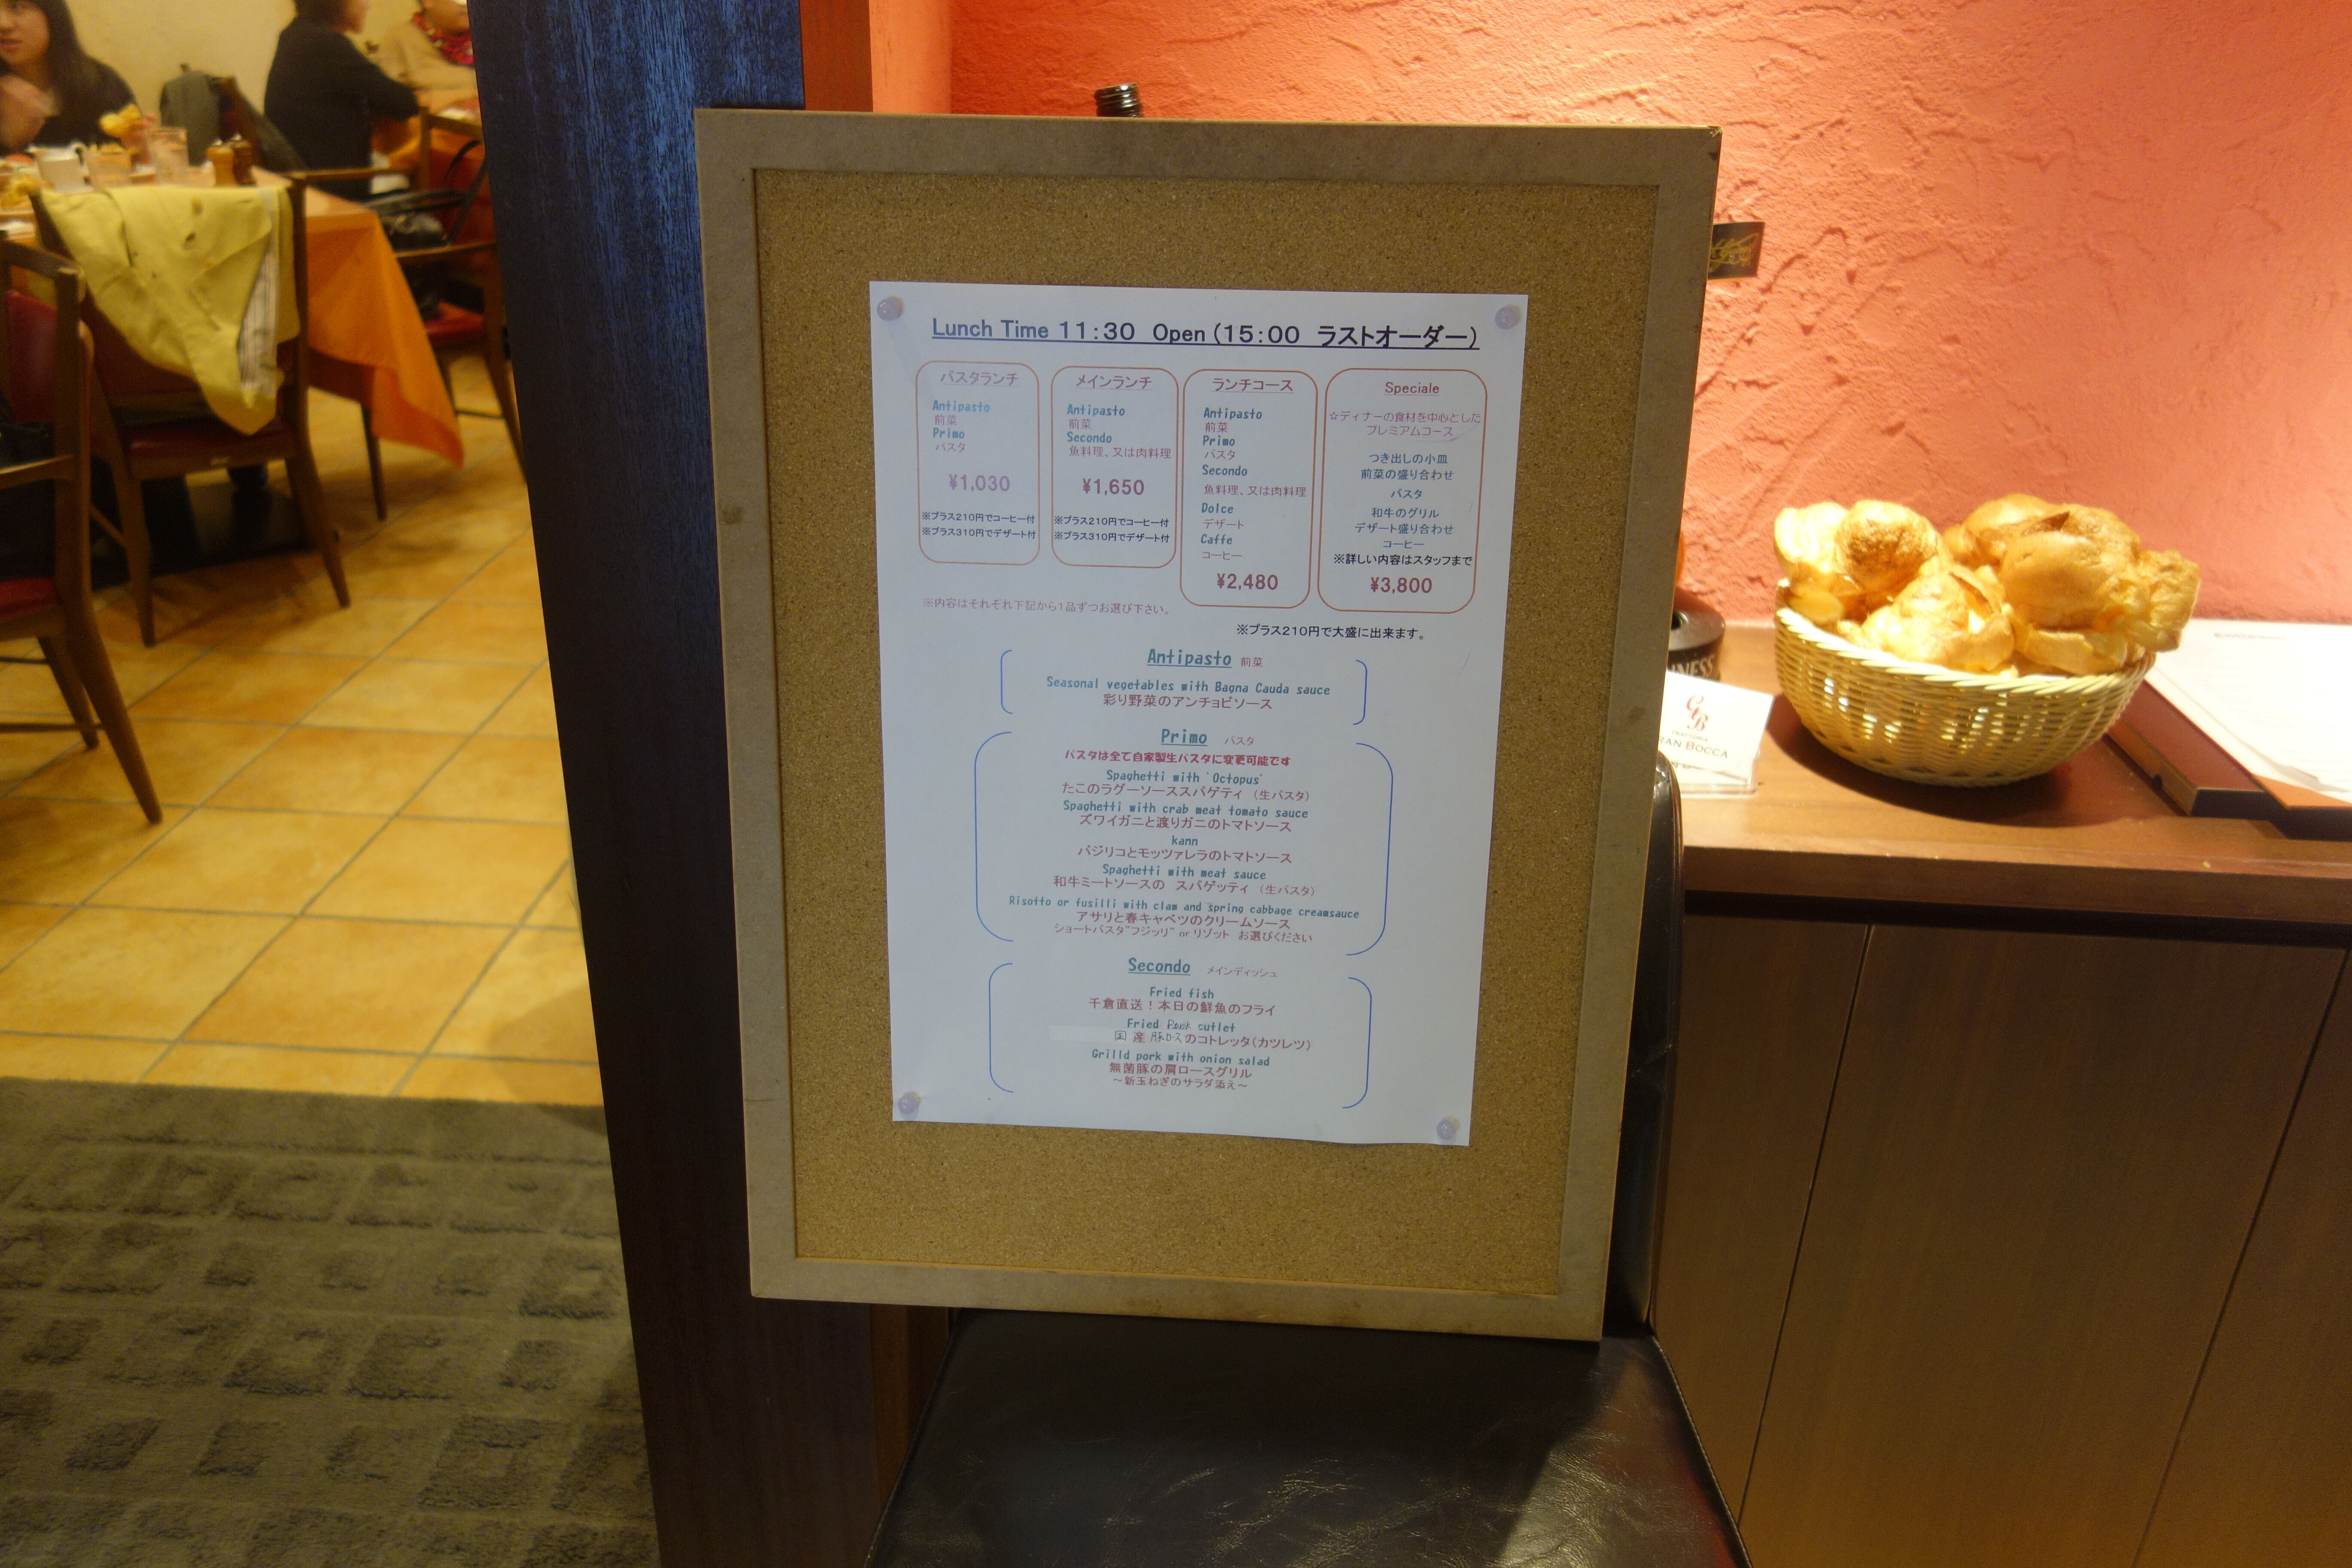 Lunch Time 11:30 Open (15:00 ラストオーダー)
パスタランチ
Antipasto
前菜
Primo
パスタ
¥1,030
※プラス210円でコーヒー付
※プラス310円でデザート付
メインランチ
Antipasto
前菜
Secondo
魚料理、又は肉料理
¥1,650
※プラス210円でコーヒー付
※プラス310円でデザート付
ランチコース
Antipasto
前菜
Primo
パスタ
Secondo
魚料理、又は肉料理
Dolce
デザート
Caffe
コーヒー
¥2,480
Speciale
☆ディナーの食材を中心とした
プレミアムコース
つき出しの小皿
前菜の盛り合わせ
パスタ
和牛のグリル
デザート盛り合わせ
コーヒー
※詳しい内容はスタッフまで
¥3,800
※内容はそれぞれ下記から1品ずつお選び下さい。
※プラス210円で大盛に出来ます。
Antipasto 前菜
Seasonal vegetables with Bagna Cauda sauce
彩り野菜のアンチョビソース
Primo パスタ
パスタは全て自家製生パスタに変更可能です
Spaghetti with 'Octopus'
たこのラグーソーススパゲティ (生パスタ)
Spaghetti with crab meat tomato sauce
ズワイガニと渡りガニのトマトソース
kann
バジリコとモッツァレラのトマトソース
Spaghetti with meat sauce
和牛ミートソースの スパゲッティ (生パスタ)
Risotto or fusilli with clam and spring cabbage creamsauce
アサリと春キャベツのクリームソース
ショートパスタ"フジッリ" or リゾット お選びください
Secondo メインディッシュ
Fried fish
千倉直送！本日の鮮魚のフライ
Fried Pork cutlet
国産豚ロースのコトレッタ(カツレツ)
Grilld pork with onion salad
無菌豚の肩ロースグリル
～新玉ねぎのサラダ添え～
GB
TRATTORIA
RAN BOCCA
NESS